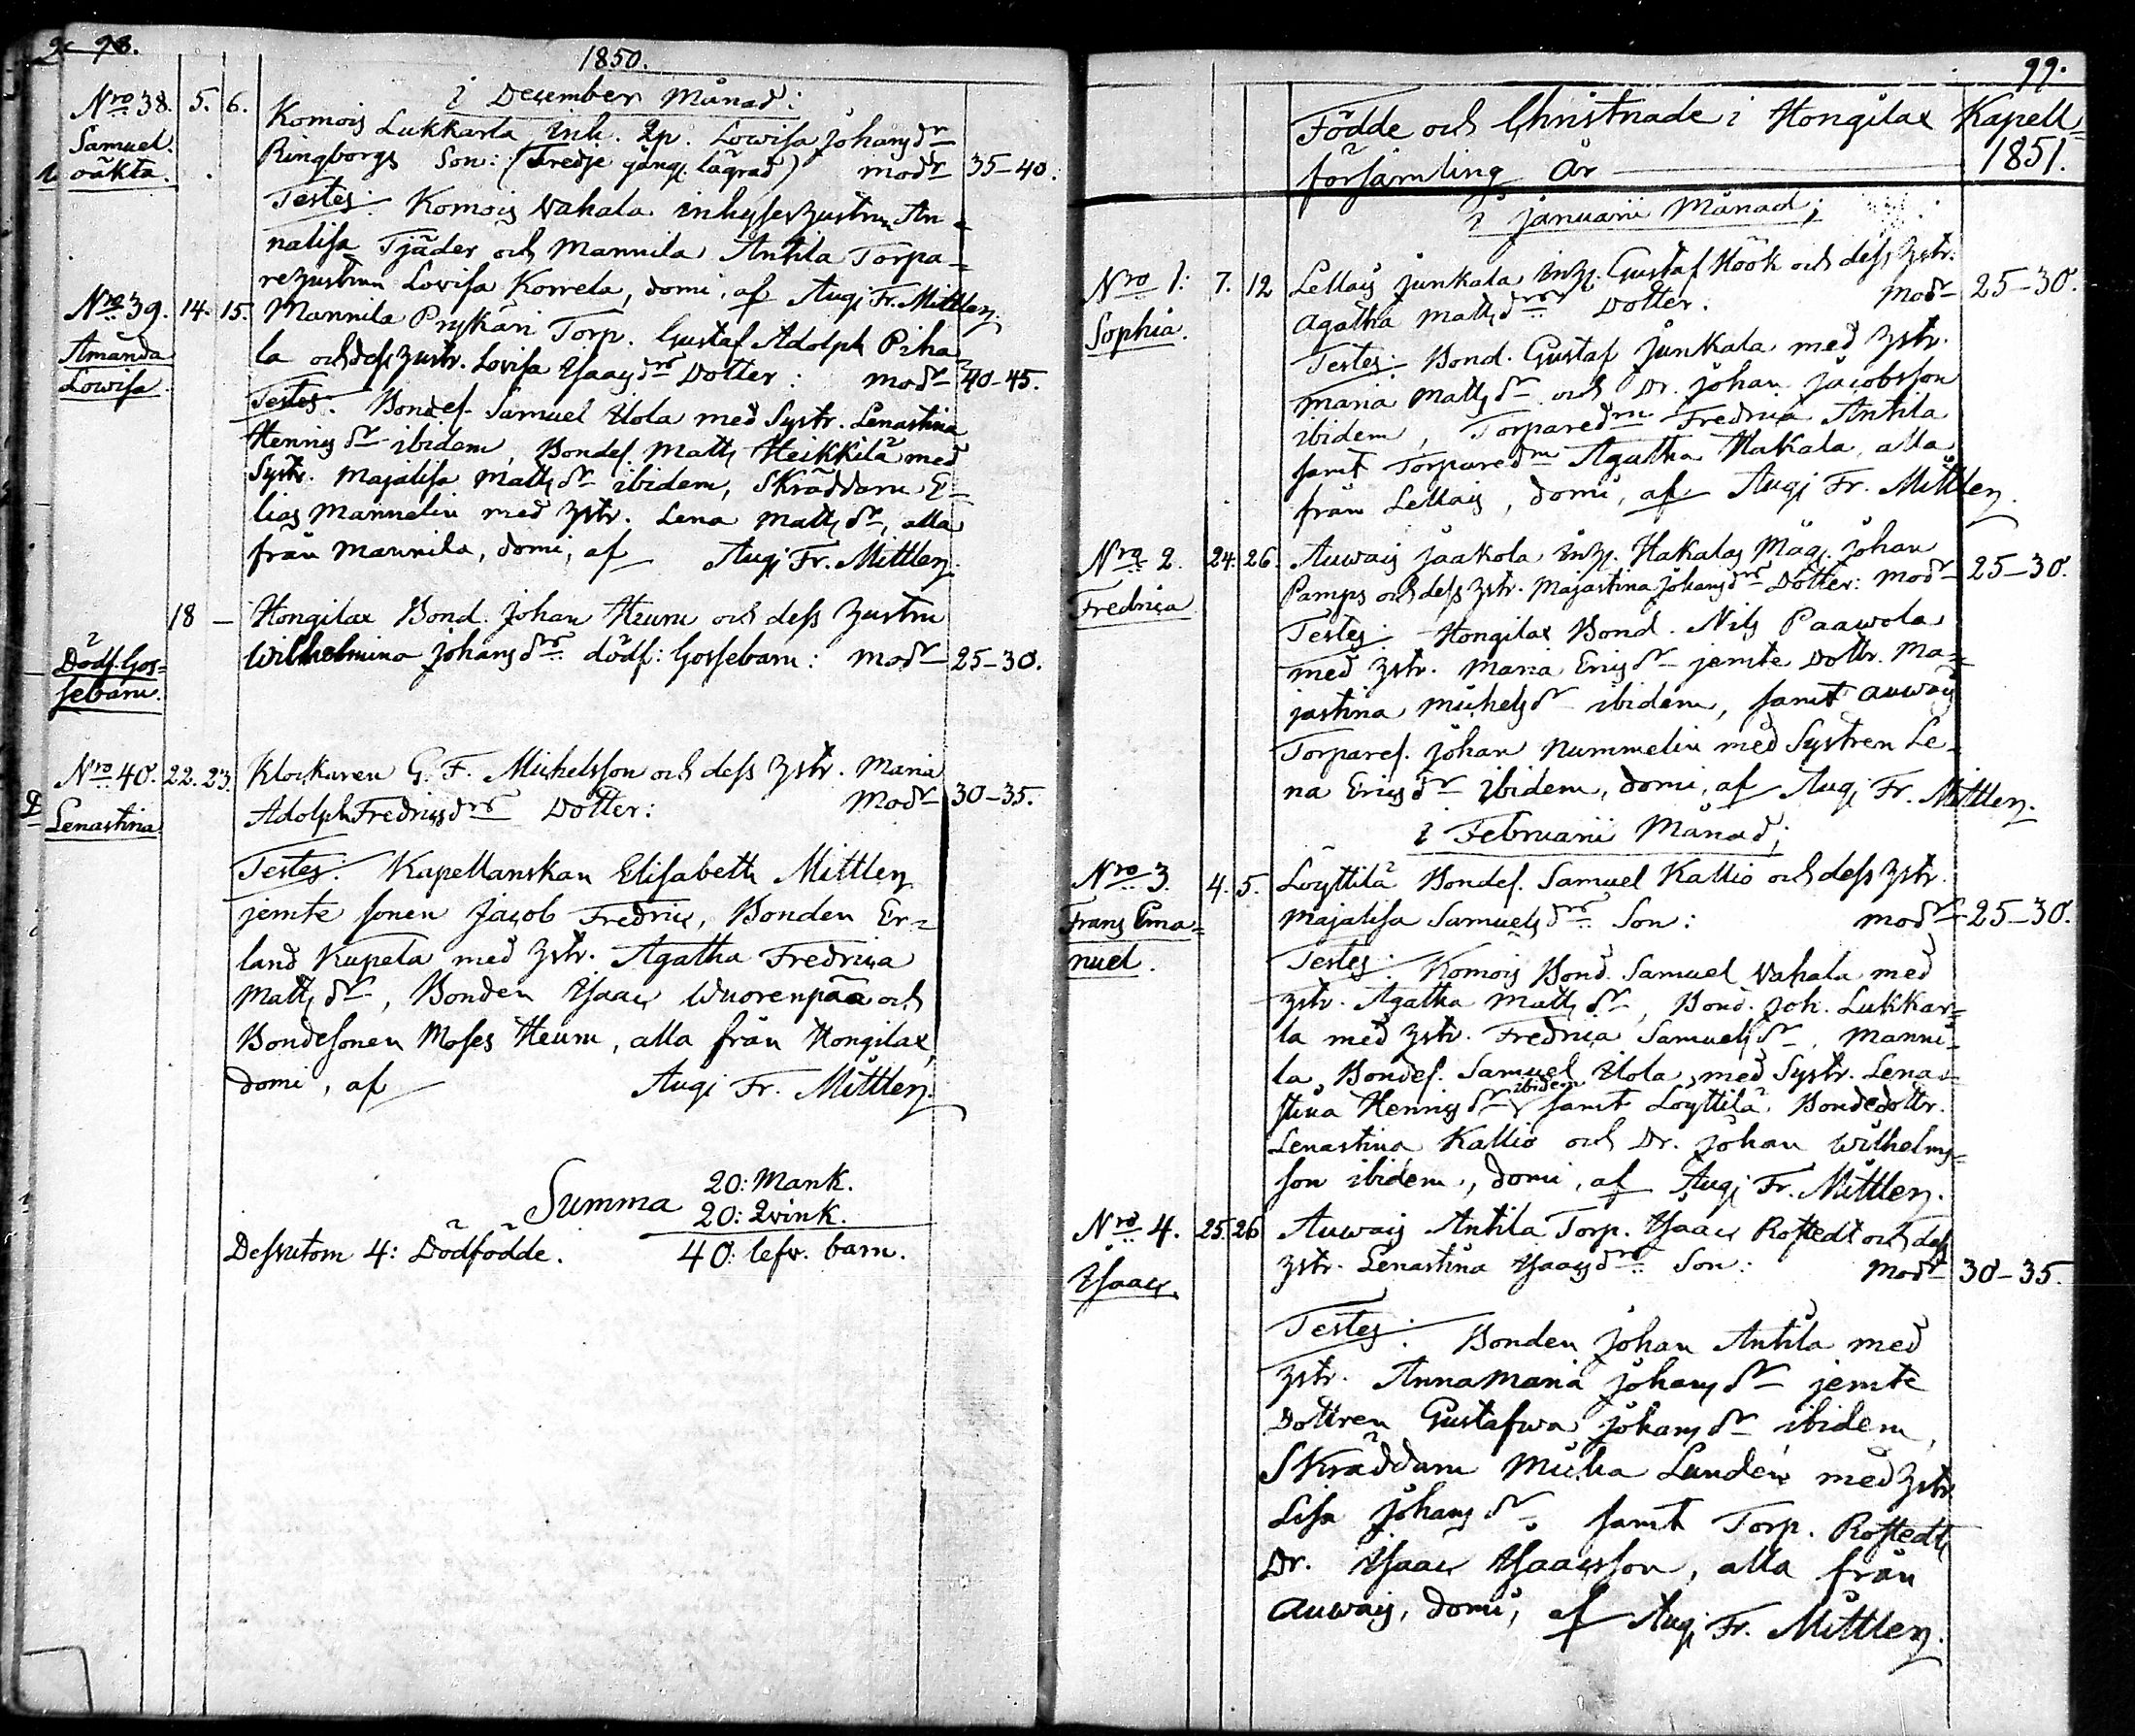 98.
1850.
i December Månad:
Nro 38. 5. 6. Komois Lukkarla Inh. Qp. Lowisa Johansdr
Samuel. Ringborgs Son: (Tredje gång. lägrad) modr 35–40.
oäkta.
Testes: Komois Vahala inhyseshustrun An-
nalisa Tjäder och Mannila Antila Torpa-
rehustrun Lovisa Korrela, domi, af Augi Fr. Mittler.
Nro 39. 14. 15. Mannila Prykäri Torp. Gustaf Adolph Piha-
Amanda la och dess hustr. Lovisa Isaacsdrs Dotter: modr 40–45.
Lowisa.
Testes: Bondes. Samuel Uola med Systr. Lenastina
Henricsdr ibidem, Bondes. Matts Heikkilä med
Systr. Majalisa Mattsdr ibidem, Skräddarn E-
lias Mannelin med hstr. Lena Mattsdr, alla
från Mannila, domi, af Augi Fr. Mittler.
18 – Hongilax Bond. Johan Heurn och dess hustru
Dödf. Gos- Wilhelmina Johansdrs dödf: Gossebarn: modr 25–30.
sebarn.
Nro 40. 22. 23. Klockaren G. F. Michelsson och dess hstr. Maria
Lenastina Adolph Fredricsdrs Dotter: Modr 30–35.
Testes: Kapellanskan Elisabeth Mittler
jemte sonen Jacob Fredric, Bonden Er-
land Kupela med hstr. Agatha Fredrica
Mattsdr, Bonden Isaac Wuorenpää och
Bondesonen Moses Heurn, alla från Hongilax,
domi, af Augi Fr. Mittler.
20: Mank.
Summa 20: Qvink.
Dessutom 4: Dödfödde. 40: lefv. barn.
99.
Födde och Christnade i Hongilax Kapell-
församling År 1851.
i Januarii Månad;
Nro 1. 7. 12 Lellais Junkala inh. Gustaf Höök och dess hstr.
Sophia. Agatha Mattsdrs Dotter. Modr 25–30.
Testes: Bond. Gustaf Junkala med hstr.
Maria Mattsdr och Dr. Johan Jacobsson
ibidem, Torparedrn Fredrica Antila
samt Torparedrn Agatha Hakala, alla
från Lellais, domi, af Augi Fr. Mittler.
Nro 2. 24. 26. Auvais Jaakola inh. Hakalas Måg. Johan
Fredrica Pamps och dess hstr. Majastina Johansdrs Dotter: Modr 25–30.
Testes: Hongilax Bond. Nils Paawola
med hstr. Maria Ericsdr jemte Dottr. Ma-
jastina Michelsdr ibidem, samt Auvais
Torpares. Johan Nummelin med Systren Le-
na Ericsdr ibidem, domi, af Augi Fr. Mittler.
i Februarii Månad;
Nro 3. 4. 5. Löyttilä Bondes. Samuel Kallio och dess hstr.
Frans Ema- Majalisa Samuelsdrs Son: modr 25–30.
nuel.
Testes: Komois Bond. Samuel Vahala med
hstr. Agatha Mattsdr, Bond. Joh. Lukkar-
la med hstr. Fredrica Samuelsdr, Manni-
la Bondes. Samuel Uola med Systr. Lena-
stina Henricsdr ibidem samt Löyttilä Bondedottr.
Lenastina Kallio och Dr. Johan Wilhelms-
son ibidem, domi, af Augi Fr. Mittler.
Nro 4. 25. 26 Auvais Antila Torp. Isaac Rostedt och dess
Isaac. hstr. Lenastina Isaacsdrs Son: Modr 30–35.
Testes: Bonden Johan Antila med
hstr. Annamaria Johansdr jemte
Dottren Gustafwa Johansdr ibidem,
Skräddarn Micha Lundén med hstr.
Lisa Johansdr samt Torp. Rostedts
Dr. Isaac Isaacsson, alla från
Auvais, domi, af Augi Fr. Mittler.